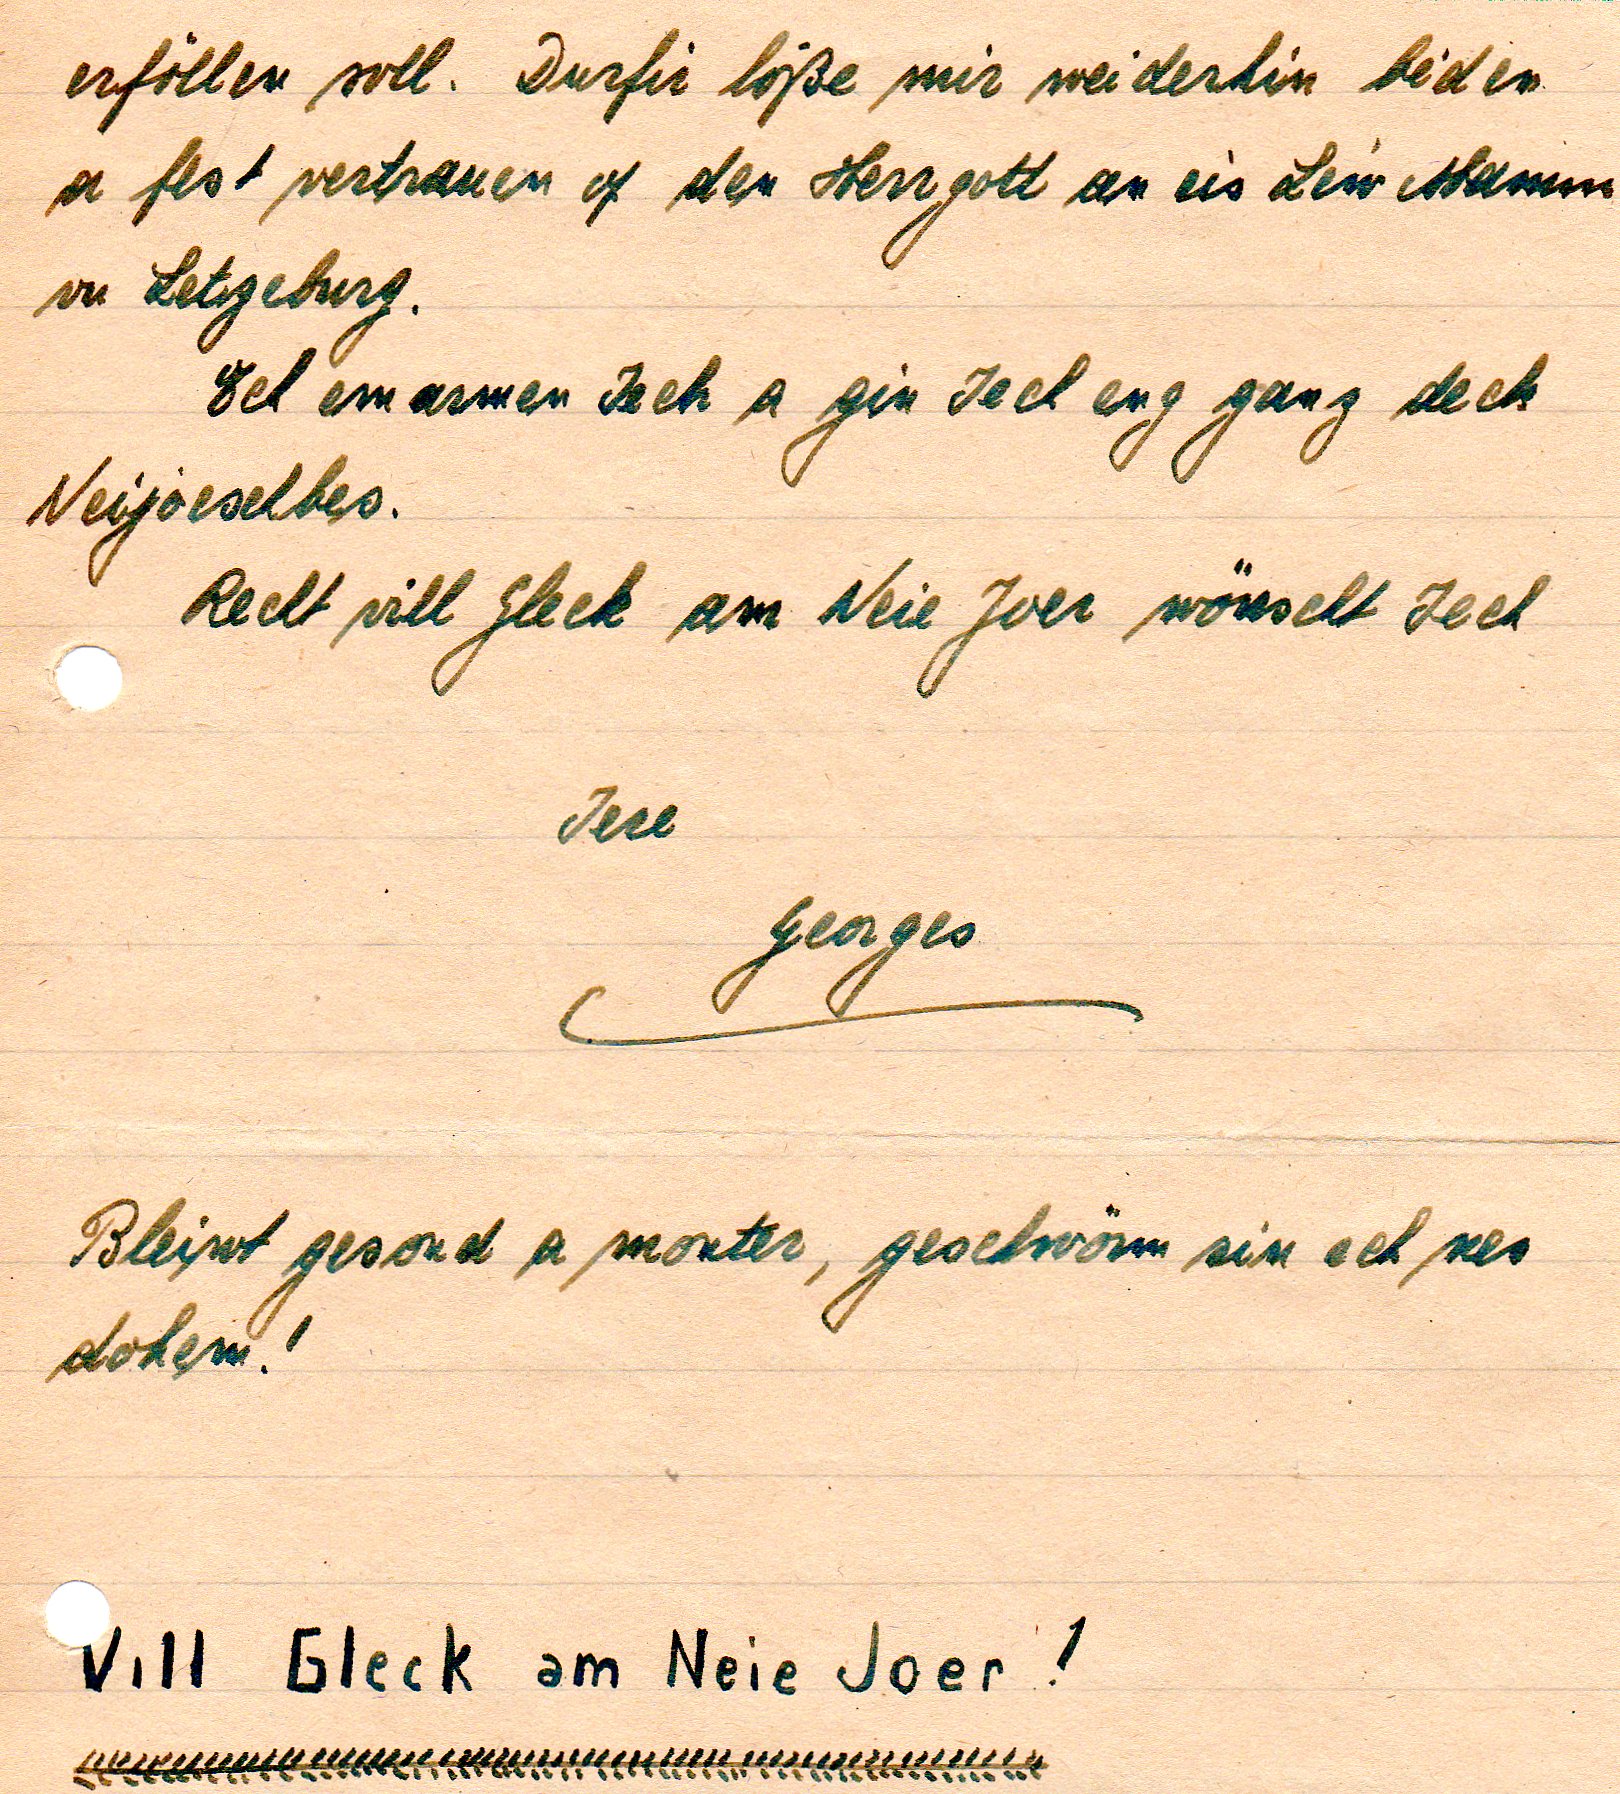 erföllen soll. Durfir lóße mir weiderhin bieden
a fest vertrauen of den Herrgott an eis Léiw Mamm
vu Letzeburg.
Ech emarmen Iech a gin Iech eng ganz deck
Neijoeschbes.
Recht vill Gleck am Neie Joer wönscht Iech
Iere
Georges
Bleiwt gesond a monter, geschwönn sin ech nes
dohem!
Vill Gleck am Neie Joer!